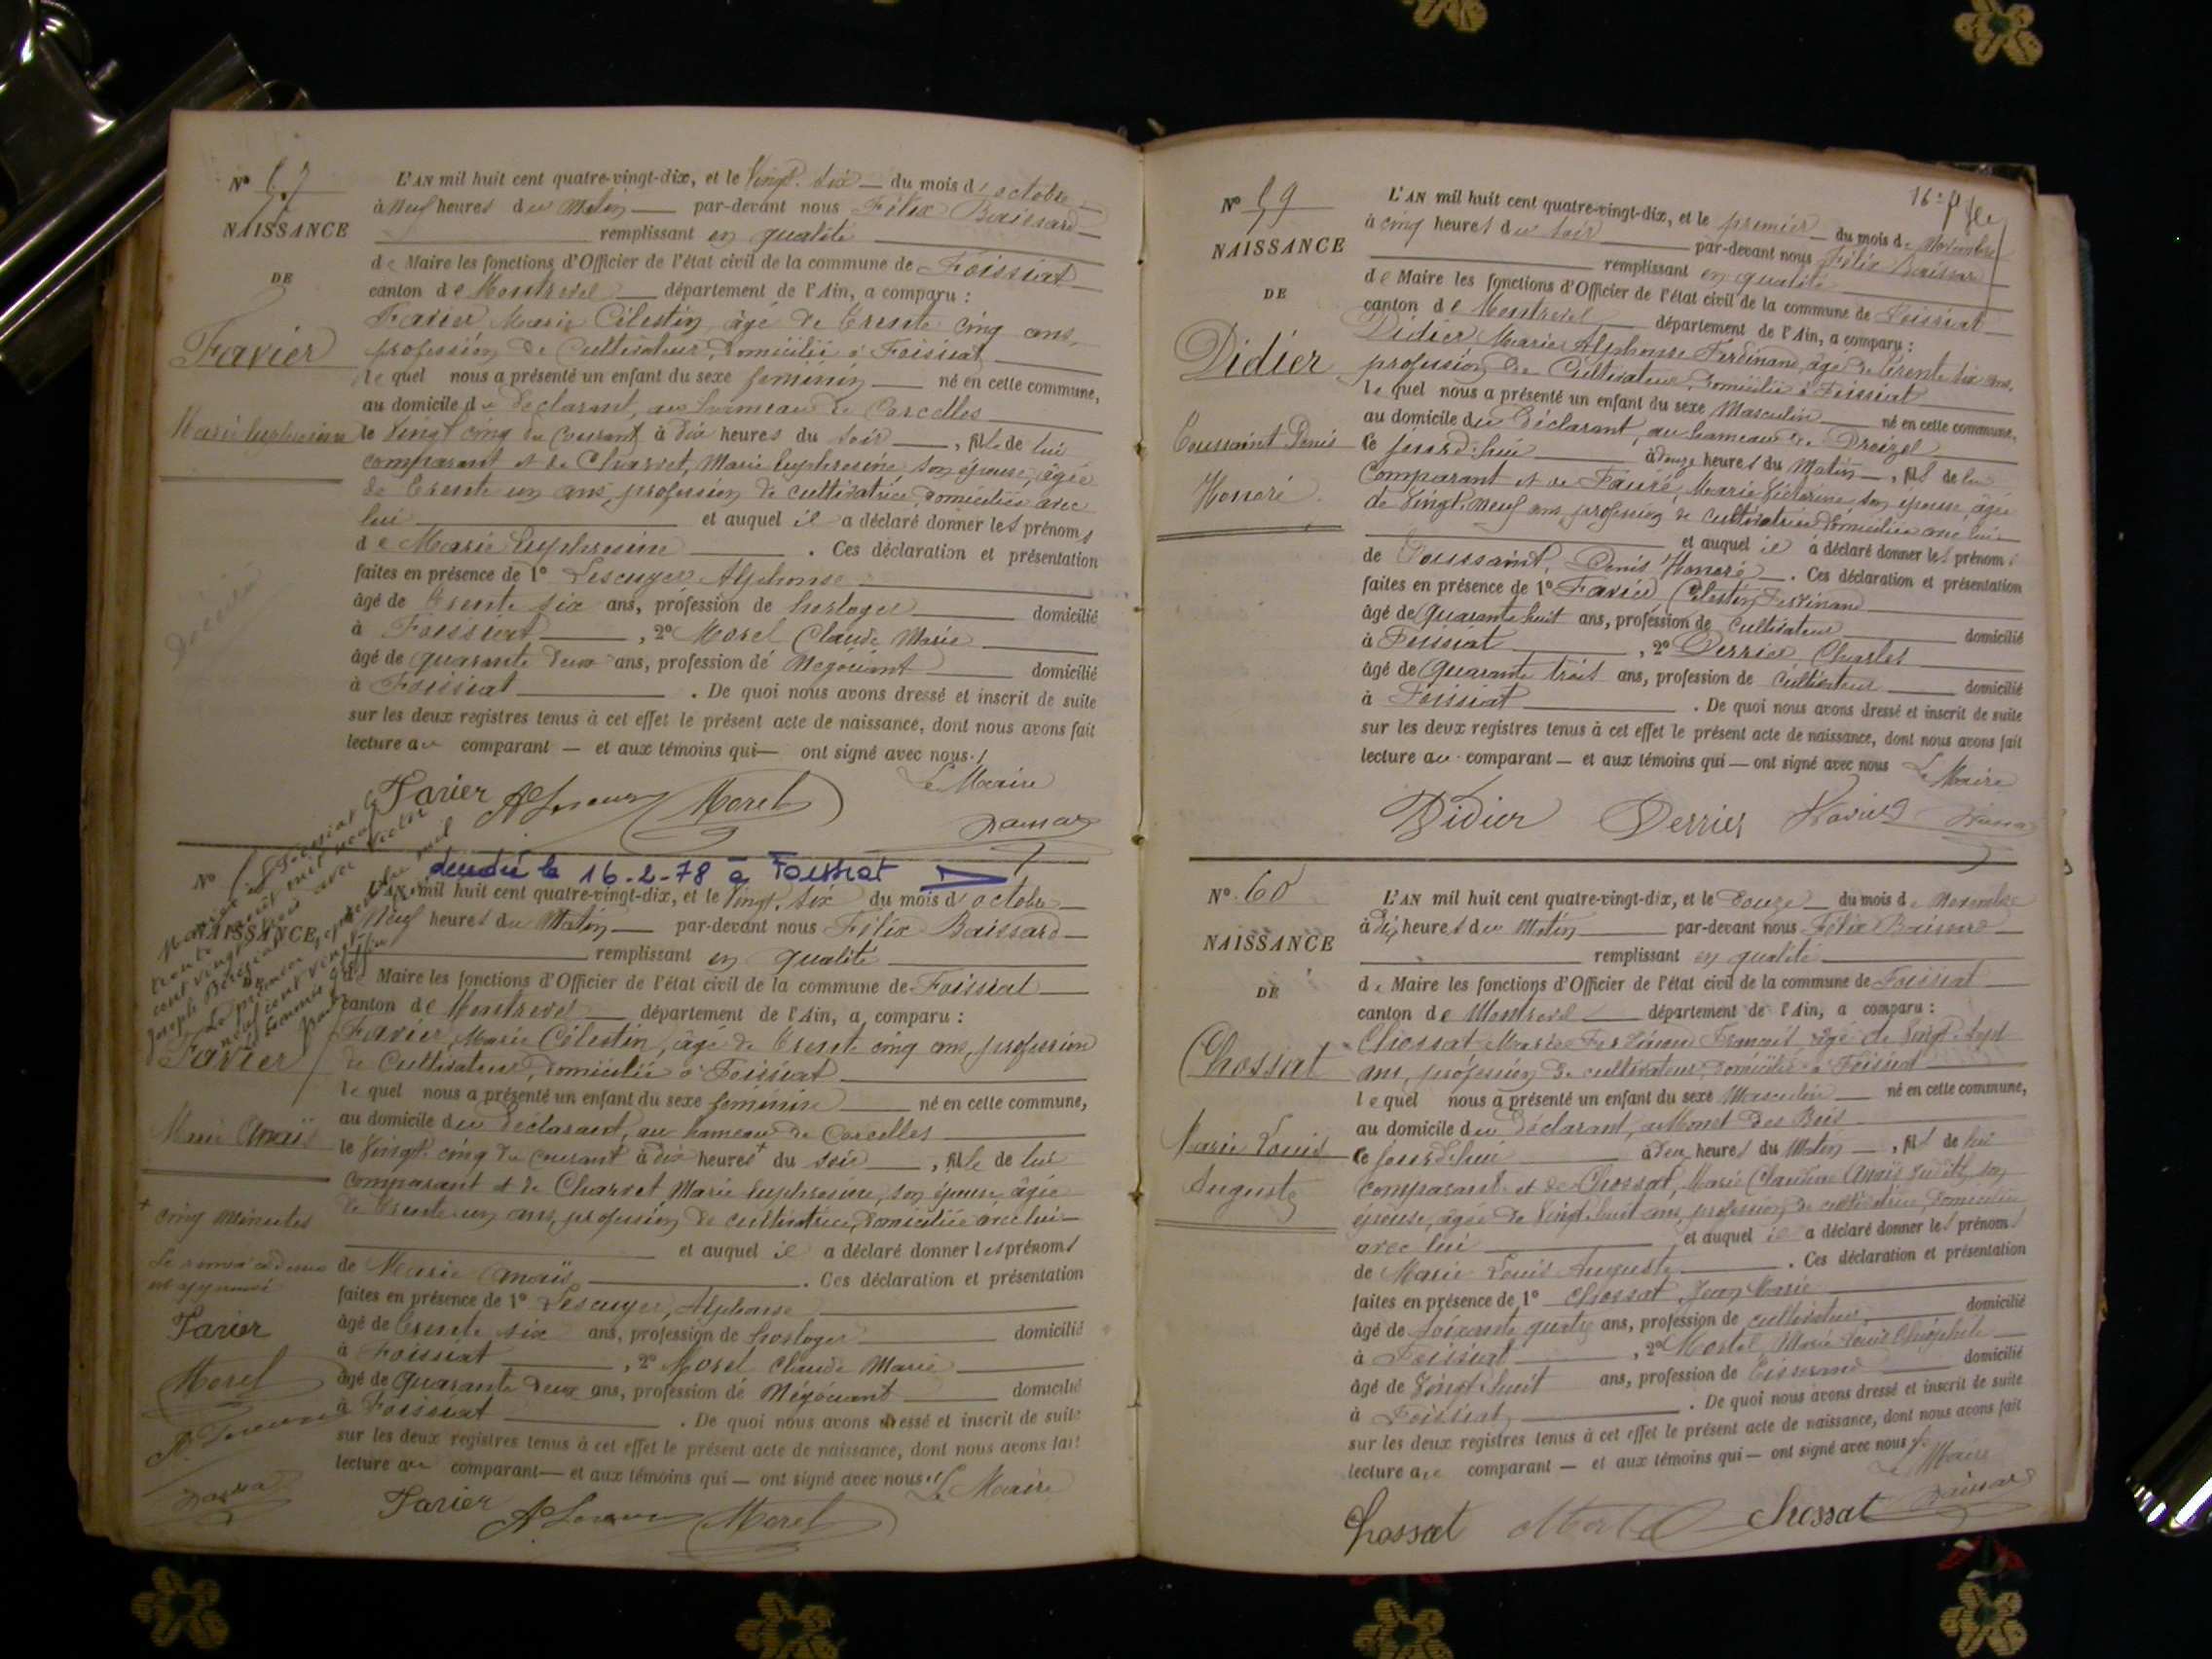 Nº 57
NAISSANCE
DE
Favier
Marie Euphrosine
L'AN mil huit cent quatre-vingt-dix, et le Vingt-six du mois d'octobre
à Neuf heures du Matin par-devant nous Félix Baissard
remplissant en qualité
de Maire les fonctions d'Officier de l'état civil de la commune de Foissiat
canton de Montrevel département de l'Ain, a comparu :
Favier Marie Célestin, âgé de trente cinq ans,
profession de Cultivateur, domicilié à Foissiat
lequel nous a présenté un enfant du sexe féminin né en cette commune,
au domicile du déclarant, au hameau de Corcelles
le Vingt cinq du Courant à dix heures du soir, fille de lui
comparant et de Charvet, Marie Euphrosine son épouse, âgée
de trente un ans, profession de cultivatrice, domiciliée avec
lui et auquel il a déclaré donner les prénoms
de Marie Euphrosine . Ces déclaration et présentation
faites en présence de 1º Lescuyer Alphonse
âgé de trente six ans, profession de horloger domicilié
à Foissiat, 2º Morel Claude Marie
âgé de quarante deux ans, profession de Négociant domicilié
à Foissiat . De quoi nous avons dressé et inscrit de suite
sur les deux registres tenus à cet effet le présent acte de naissance, dont nous avons fait
lecture au comparant — et aux témoins qui — ont signé avec nous.
Le Maire
Favier Morel
Nº
NAISSANCE
Favier
Marie Anaïs
décédée le 16-2-78 à Foissiat
L'AN mil huit cent quatre-vingt-dix, et le Vingt-six du mois d'octobre
à Neuf heures du Matin par-devant nous Félix Baissard
remplissant en qualité
de Maire les fonctions d'Officier de l'état civil de la commune de Foissiat
canton de Montrevel département de l'Ain, a comparu :
Favier, Marie Célestin, âgé de trente cinq ans, profession
de Cultivateur, domicilié à Foissiat
lequel nous a présenté un enfant du sexe féminin né en cette commune,
au domicile du déclarant, au hameau de Corcelles
le Vingt cinq du courant à dix heures + du soir, fille de lui
comparant et de Charvet Marie Euphrosine, son épouse, âgée
de trente un ans, profession de cultivatrice, domiciliée avec lui
et auquel il a déclaré donner les prénoms
de Marie Anaïs . Ces déclaration et présentation
faites en présence de 1º Lescuyer, Alphonse
âgé de trente six ans, profession de horloger domicilié
à Foissiat, 2º Morel Claude Marie
âgé de quarante deux ans, profession de Négociant domicilié
à Foissiat . De quoi nous avons dressé et inscrit de suite
sur les deux registres tenus à cet effet le présent acte de naissance, dont nous avons fait
lecture au comparant — et aux témoins qui — ont signé avec nous.
Le Maire
Favier Morel
+ cinq minutes
Le renvoi ci-dessus
est approuvé
Favier
Morel
Nº 59
NAISSANCE
DE
Didier
Toussaint Denis
Honoré
L'AN mil huit cent quatre-vingt-dix, et le premier du mois de Novembre
à cinq heures du soir par-devant nous Félix Baissard
remplissant en qualité
de Maire les fonctions d'Officier de l'état civil de la commune de Foissiat
canton de Montrevel département de l'Ain, a comparu :
Didier Marie Alphonse Ferdinand, âgé de trente six ans,
profession de Cultivateur, domicilié à Foissiat
lequel nous a présenté un enfant du sexe Masculin né en cette commune,
au domicile du déclarant, au hameau de
Ce jourd'hui à heures du Matin, fils de lui
comparant et de Fauré, Marie Victorine son épouse, âgée
de Vingt-neuf ans, profession de cultivatrice domiciliée avec lui
et auquel il a déclaré donner les prénoms
de Toussaint, Denis Honoré . Ces déclaration et présentation
faites en présence de 1º Favier Célestin Ferdinand
âgé de Quarante huit ans, profession de Cultivateur domicilié
à Foissiat, 2º Derrier Charles
âgé de Quarante trois ans, profession de Cultivateur domicilié
à Foissiat . De quoi nous avons dressé et inscrit de suite
sur les deux registres tenus à cet effet le présent acte de naissance, dont nous avons fait
lecture au comparant — et aux témoins qui — ont signé avec nous
Le Maire
Didier Derrier Favier
Nº 60
NAISSANCE
DE
Chossat
Marie Louis
Auguste
L'AN mil huit cent quatre-vingt-dix, et le douze du mois de Novembre
à dix heures du Matin par-devant nous Félix Baissard
remplissant en qualité
de Maire les fonctions d'Officier de l'état civil de la commune de Foissiat
canton de Montrevel département de l'Ain, a comparu :
Chossat Marie Ferdinand François, âgé de vingt-sept
ans, profession de cultivateur, domicilié à Foissiat
lequel nous a présenté un enfant du sexe Masculin né en cette commune,
au domicile du déclarant, au Monet des Bois
Ce jourd'hui à deux heures du Matin, fils de lui
comparant et de Chossat, Marie Claudine Anaïs Judith, son
épouse, âgée de Vingt huit ans, profession de cultivatrice, domiciliée
avec lui et auquel il a déclaré donner les prénoms
de Marie Louis Auguste . Ces déclaration et présentation
faites en présence de 1º Chossat Jean Marie
âgé de soixante quatre ans, profession de cultivateur domicilié
à Foissiat, 2º Marie Louis Théophile
âgé de Vingt huit ans, profession de Tisserand domicilié
à Foissiat . De quoi nous avons dressé et inscrit de suite
sur les deux registres tenus à cet effet le présent acte de naissance, dont nous avons fait
lecture au comparant — et aux témoins qui — ont signé avec nous
Le Maire
Chossat Chossat